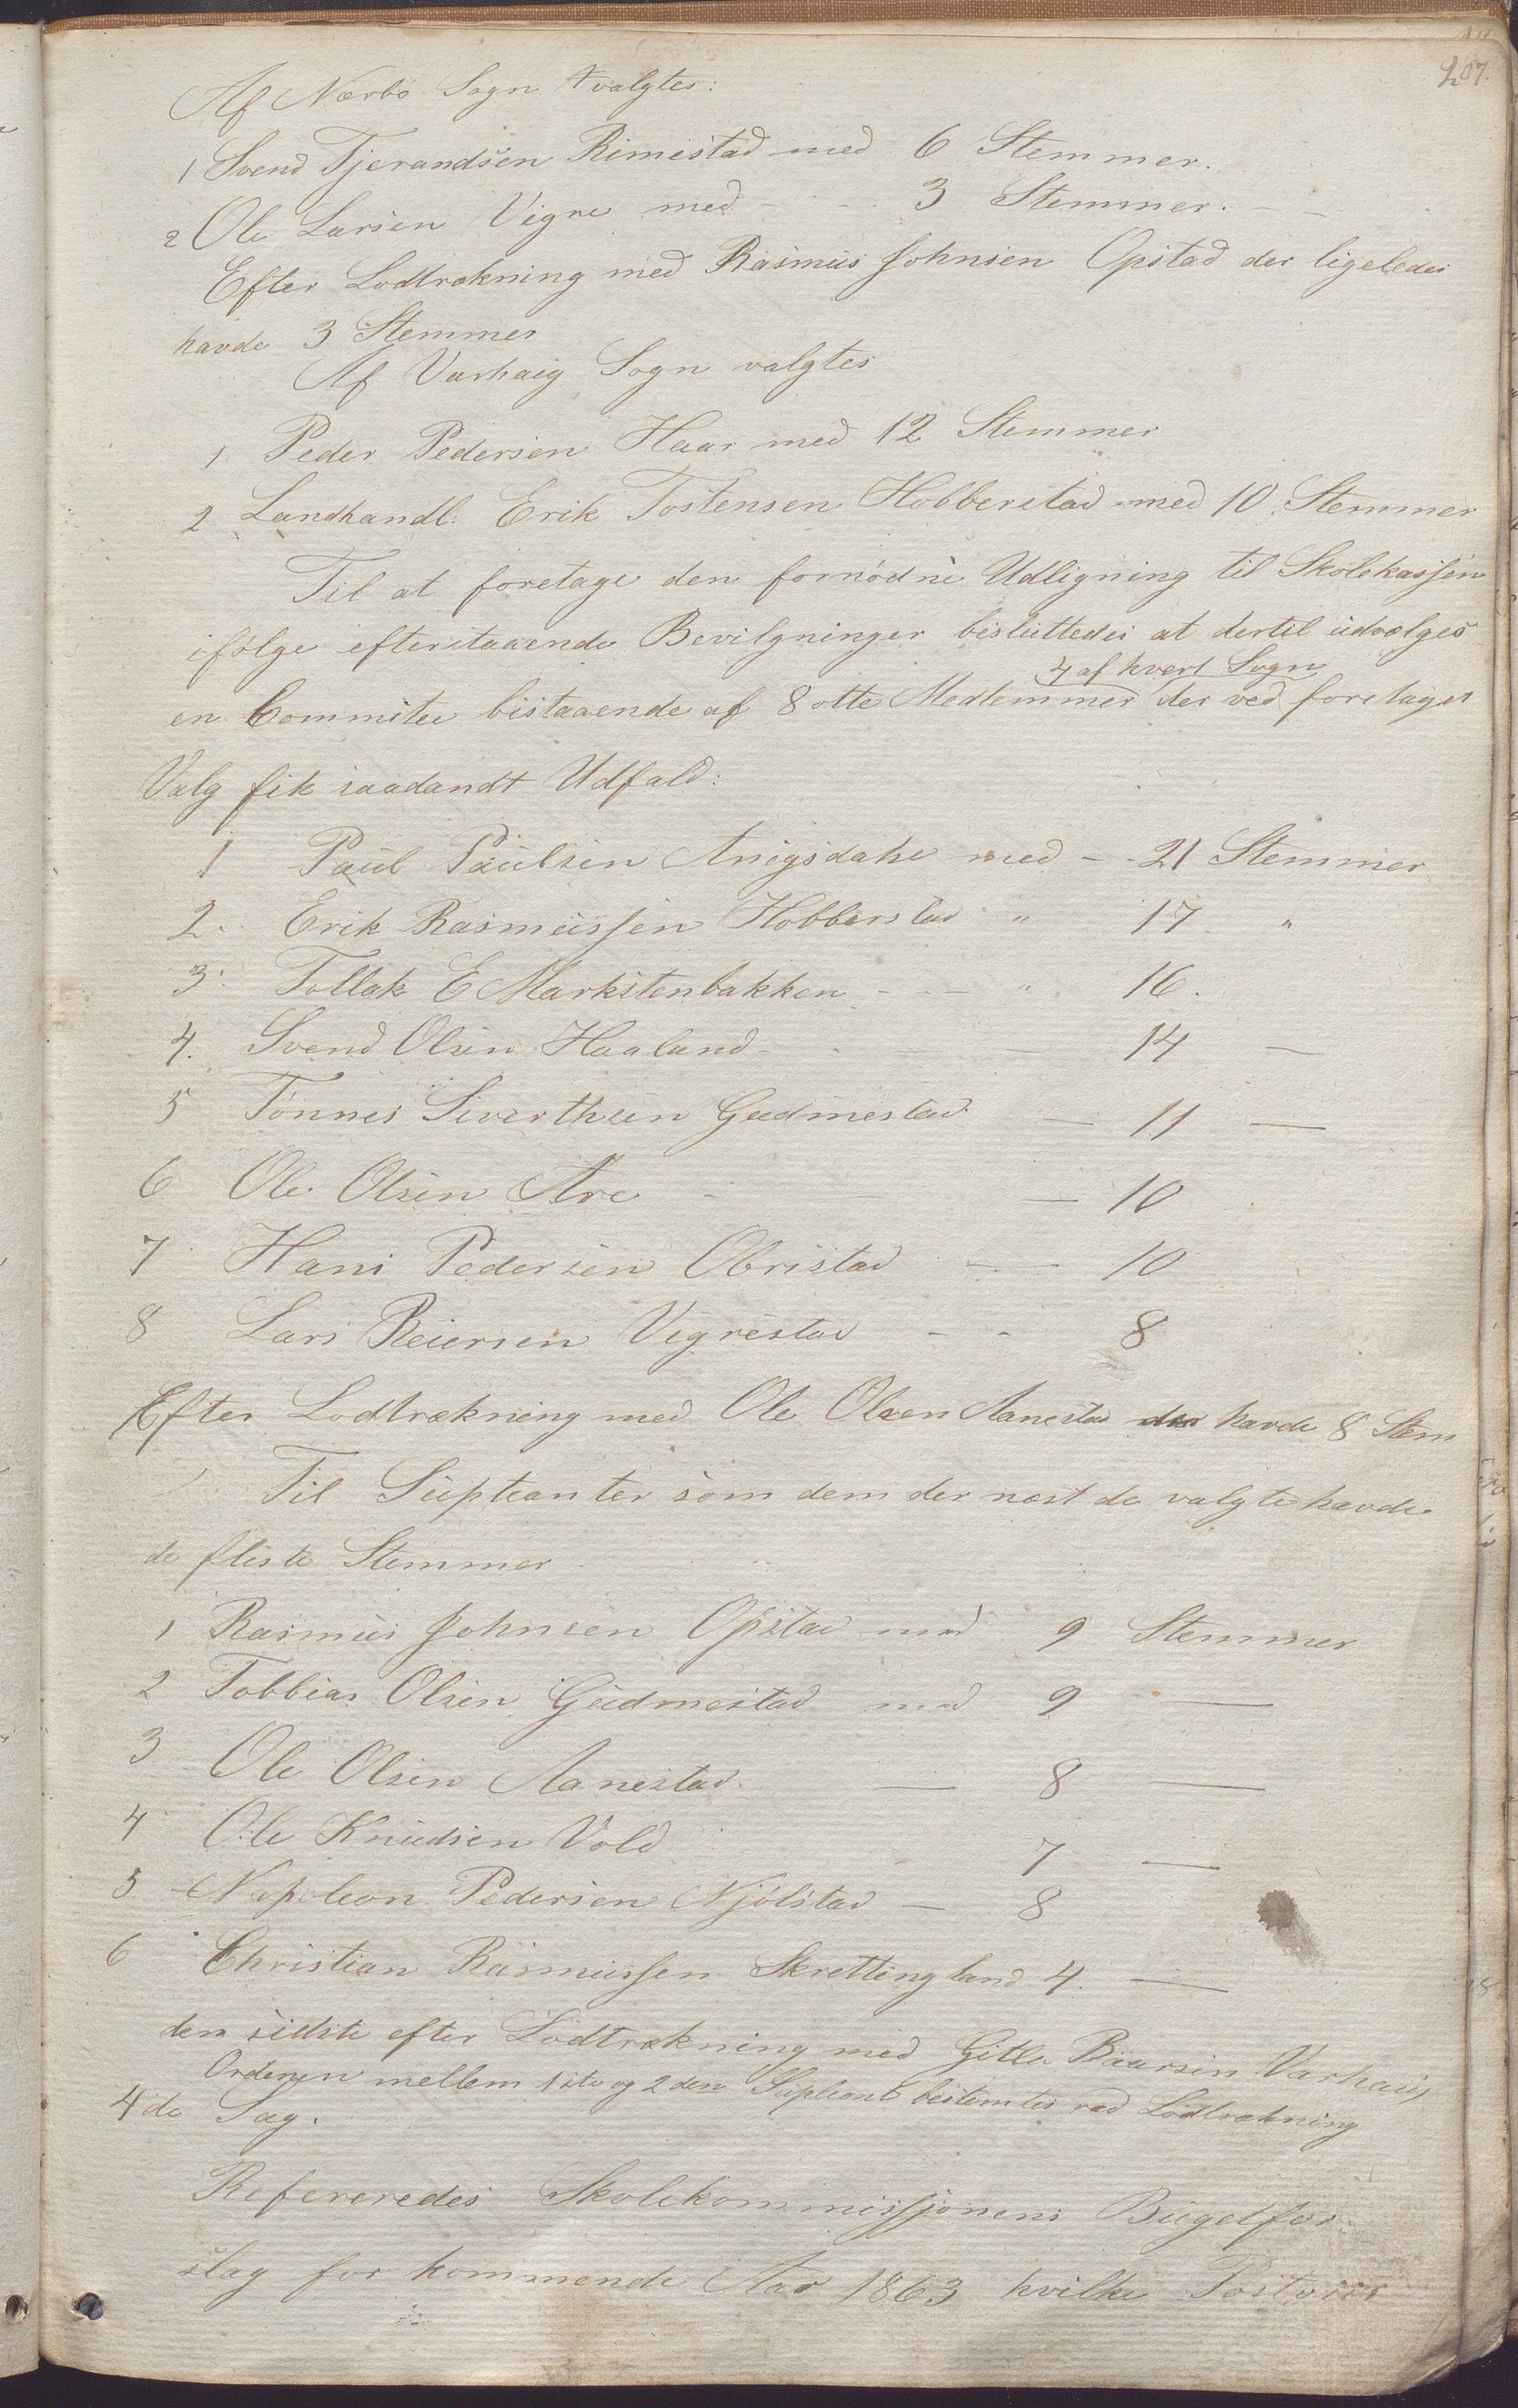 207.
Af Nærbø Sogn valgtes:
1 Svend Tjerandsen Rimestad med 6 Stemmer.
2 Ole Larsen Vigre med - - - 3 Stemmer. -
Efter Lodtrækning med Rasmus Johnsen Opstad der ligeledes
havde 3 Stemmer
Af Varhaug Sogn valgtes
1 Peder Pedersen Haar med 12 Stemmer
2 Landhandl: Erik Tostensen Hobberstad med 10 Stemmer
Til at foretage den fornødne Udligning til Skolekassen
ifølge efterstaaende Bevilgninger besluttedes at dertil udvælges
4 af hvert Sogn
en Commitee bestaaende af 8 otte Medlemmer der ved foretaget
Valg fik saadandt Udfald:
1 Paul Paulsen Anigsdahl med - - 21 Stemmer
2. Erik Rasmussen Hobberstad " 17 "
3. Tollak E Markstenbakken - - - " 16.
4. Svend Olsen Haaland - - 14 -
5 Tønnes Sivertsen Gudmestad - 11 -
6 Ole Olsen Are - - 10
7 Hans Pedersen Obrestad - - 10
8 Lars Reiersen Vigrestad - - 8
Efter Lodtrækning med Ole Olsen Aanestad der havde 8 Stem
Til Supleanter som dem der næst de valgte havde
de fleste Stemmer
1 Rasmus Johnsen Opstad med 9 Stemmer
2 Tobbias Olsen Gudmestad med 9 -
3 Ole Olsen Aanestad - 8 -
4 Ole Knudsen Vold - 7 -
5 Napoleon Pedersen Njølstad - 8
6 Christian Rasmussen Skrettingland 4. -
den sidste efter Lodtrækning med Gitle Baarsen Varhaug
Ordenen mellem 1ste og 2den Supleant bestemtes ved Lodtrækning
4de Sag.
Refereredes Skolekommissjonens Bugetfor-
slag for kommende Aar 1863 hvilke